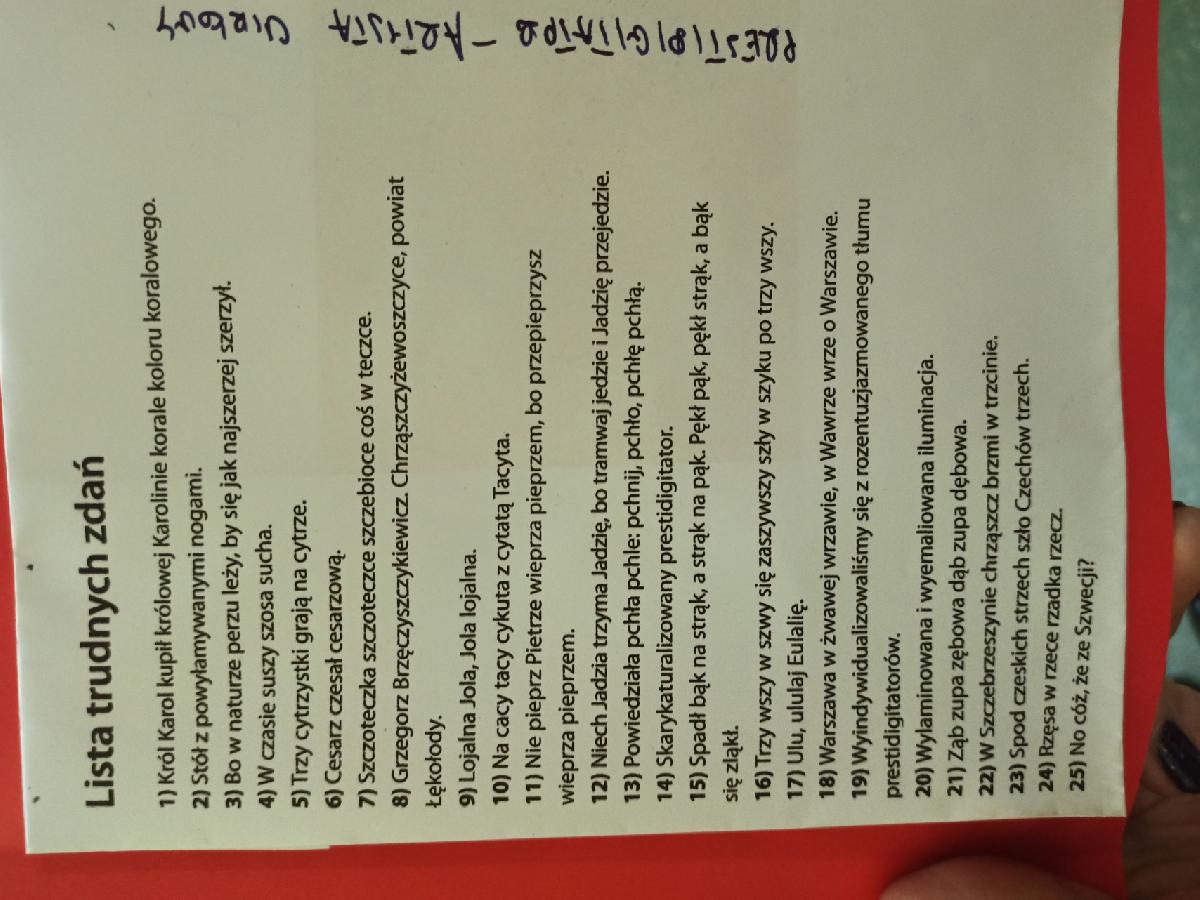 Lista trudnych zdań
1) Król Karol kupił królowej Karolinie korale koloru koralowego.
2) Stół z powyłamywanymi nogami.
3) Bo w naturze perzu leży, by się jak najszerzej szerzył.
4) W czasie suszy szosa sucha.
5) Trzy cytrzystki grają na cytrze.
6) Cesarz czesał cesarzową.
7) Szczoteczka szczoteczce szczebioce coś w teczce.
8) Grzegorz Brzęczyszczykiewicz. Chrząszczyżewoszczyce, powiat
Łękołody.
9) Lojalna Jola, Jola lojalna.
10) Na cacy tacy cykuta z cytatą Tacyta.
11) Nie pieprz Pietrze wieprza pieprzem, bo przepieprzysz
wieprza pieprzem.
12) Niech Jadzia trzyma Jadzię, bo tramwaj jedzie i Jadzię przejedzie.
13) Powiedziała pchła pchle: pchnij, pchło, pchłę pchłą.
14) Skarykaturalizowany prestidigitator.
15) Spadł bąk na strąk, a strąk na pąk. Pękł pąk, pękł strąk, a bąk
się zląkł.
16) Trzy wszy w szwy się zaszywszy szły w szyku po trzy wszy.
17) Ulu, ululaj Eulalię.
18) Warszawa w żwawej wrzawie, w Wawrze wrze o Warszawie.
19) Wyindywidualizowaliśmy się z rozentuzjazmowanego tłumu
prestidigitatorów.
20) Wylaminowana i wyemaliowana iluminacja.
21) Ząb zupa zębowa dąb zupa dębowa.
22) W Szczebrzeszynie chrząszcz brzmi w trzcinie.
23) Spod czeskich strzech szło Czechów trzech.
24) Rzęsa w rzece rzadka rzecz.
25) No cóż, że ze Szwecji?
PRESTIDIGITATOR – ARTYSTA CYRKOWY